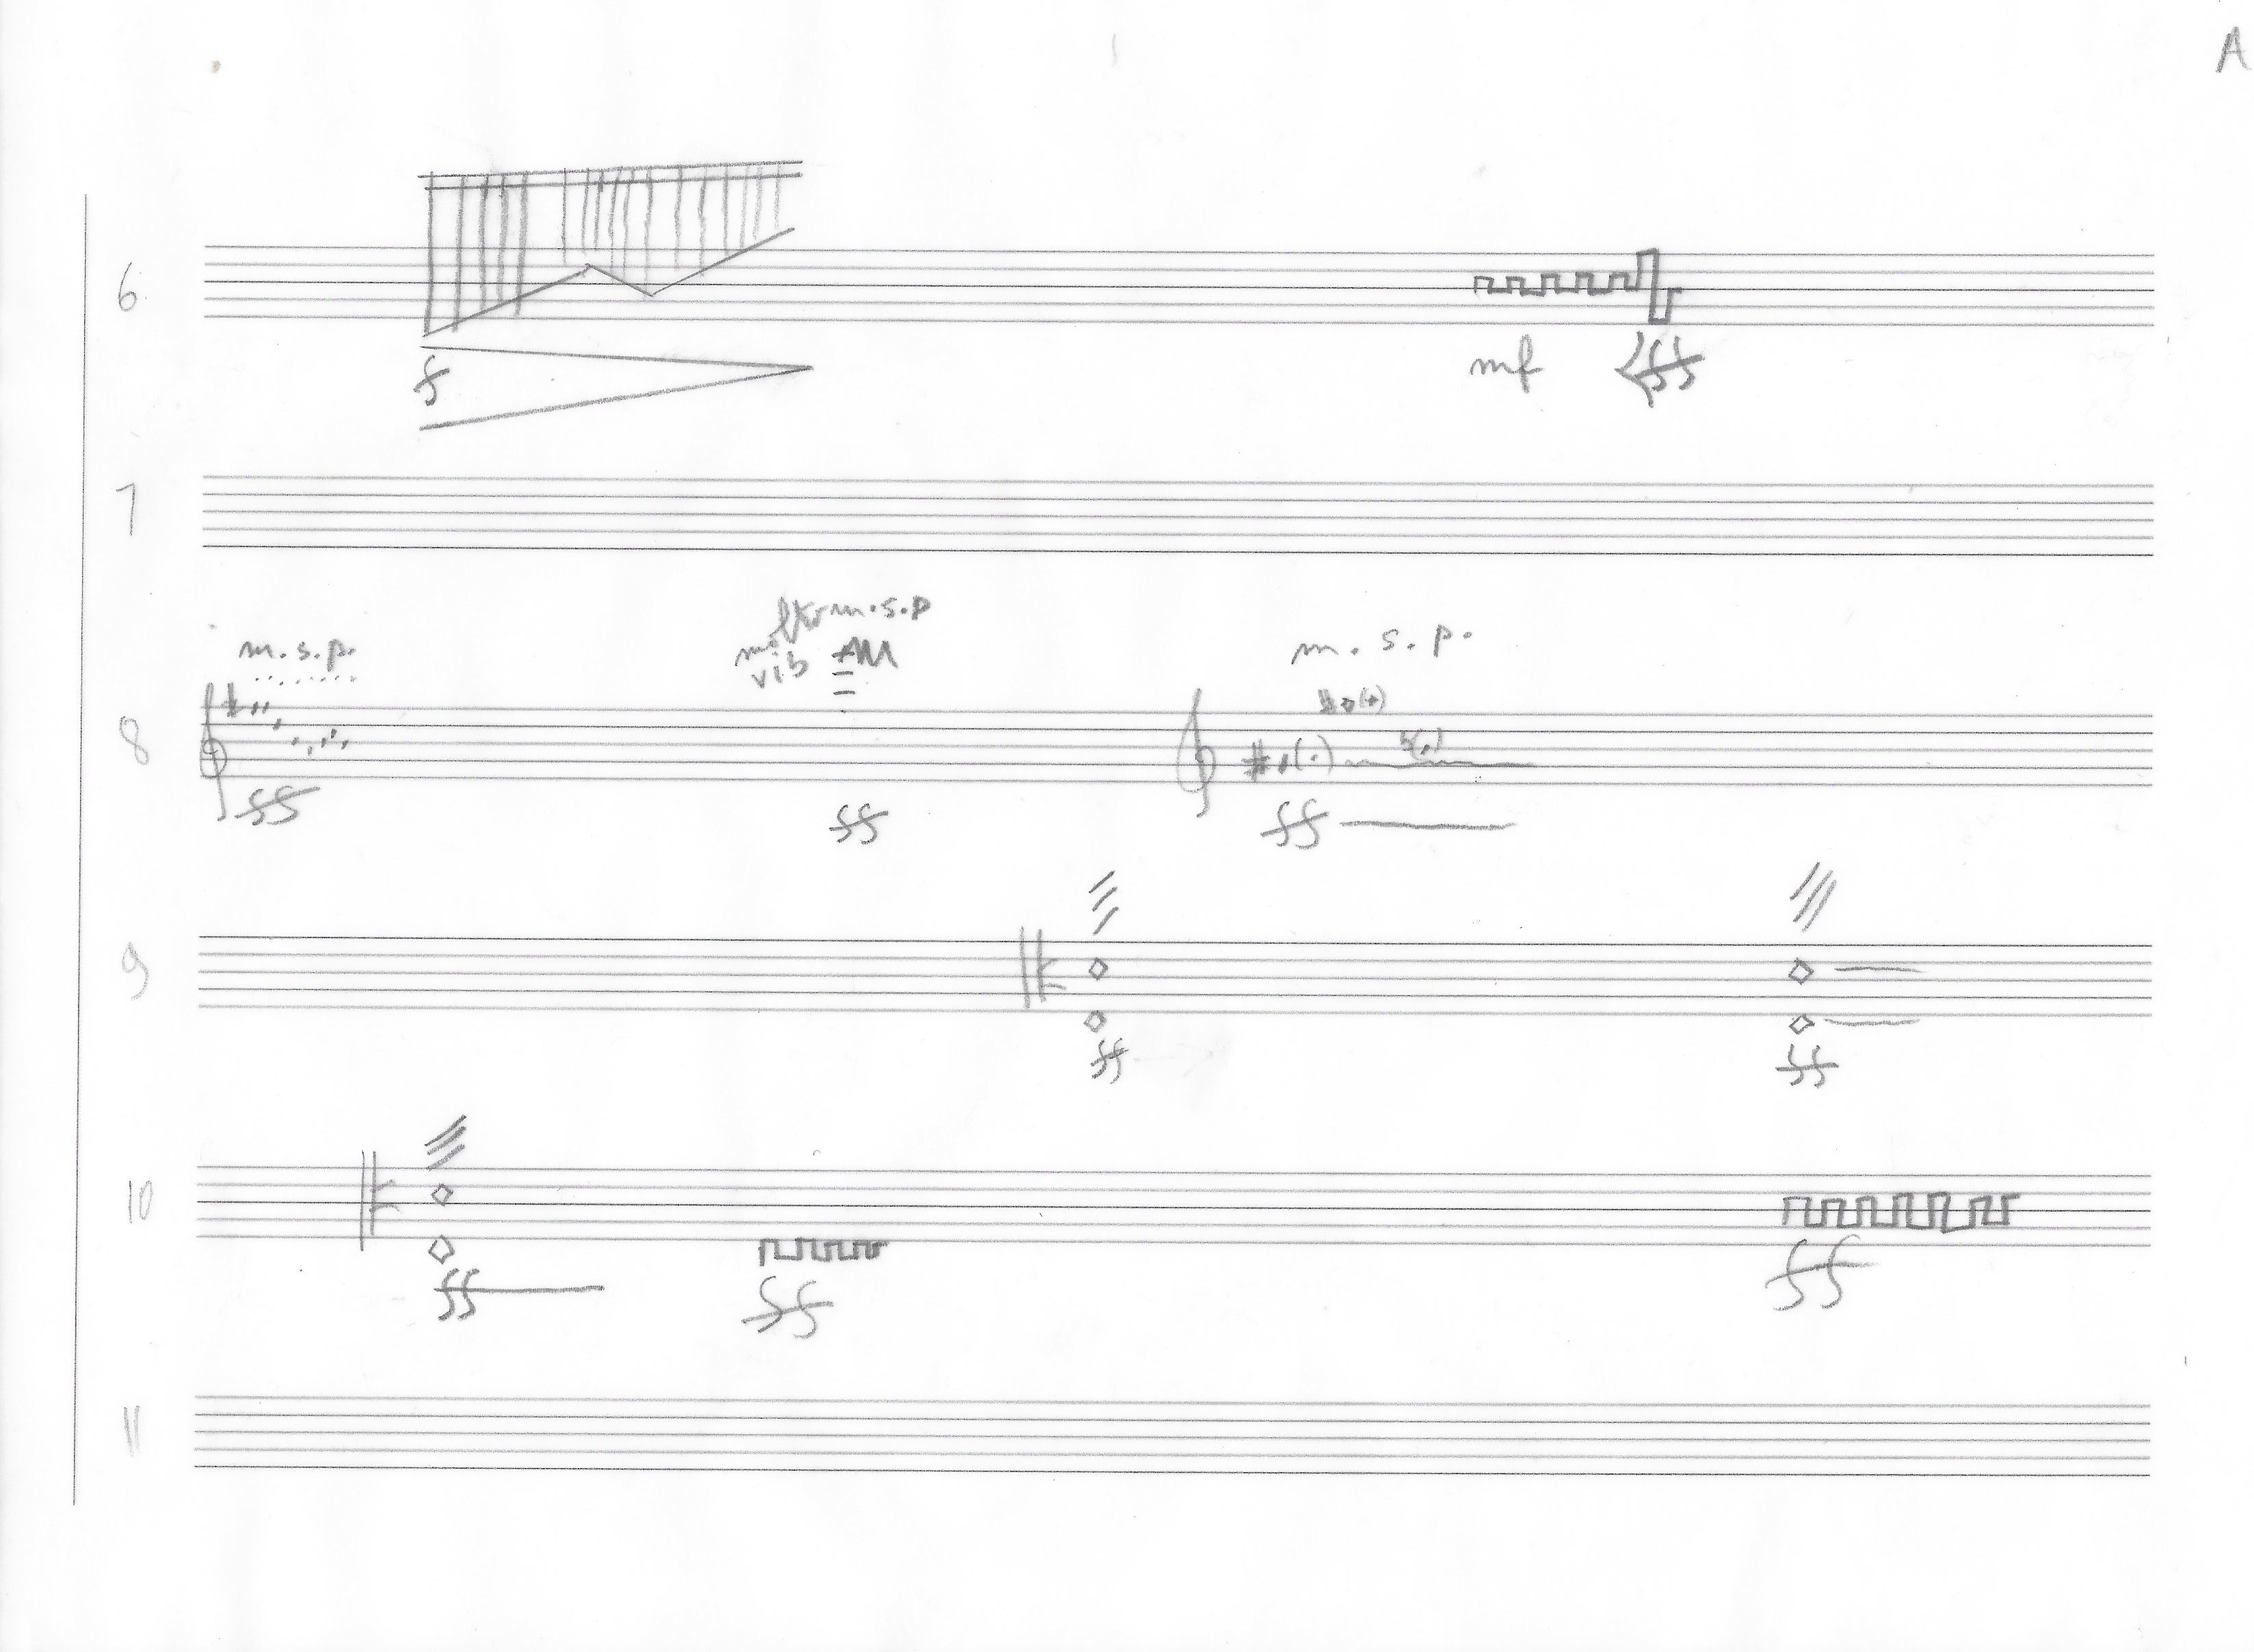 A
6
f
mf ff
7
m.s.p.
molto m.s.p
vib
m. s. p.
8
ff ff ff
9
ff ff
10
ff ff ff
11